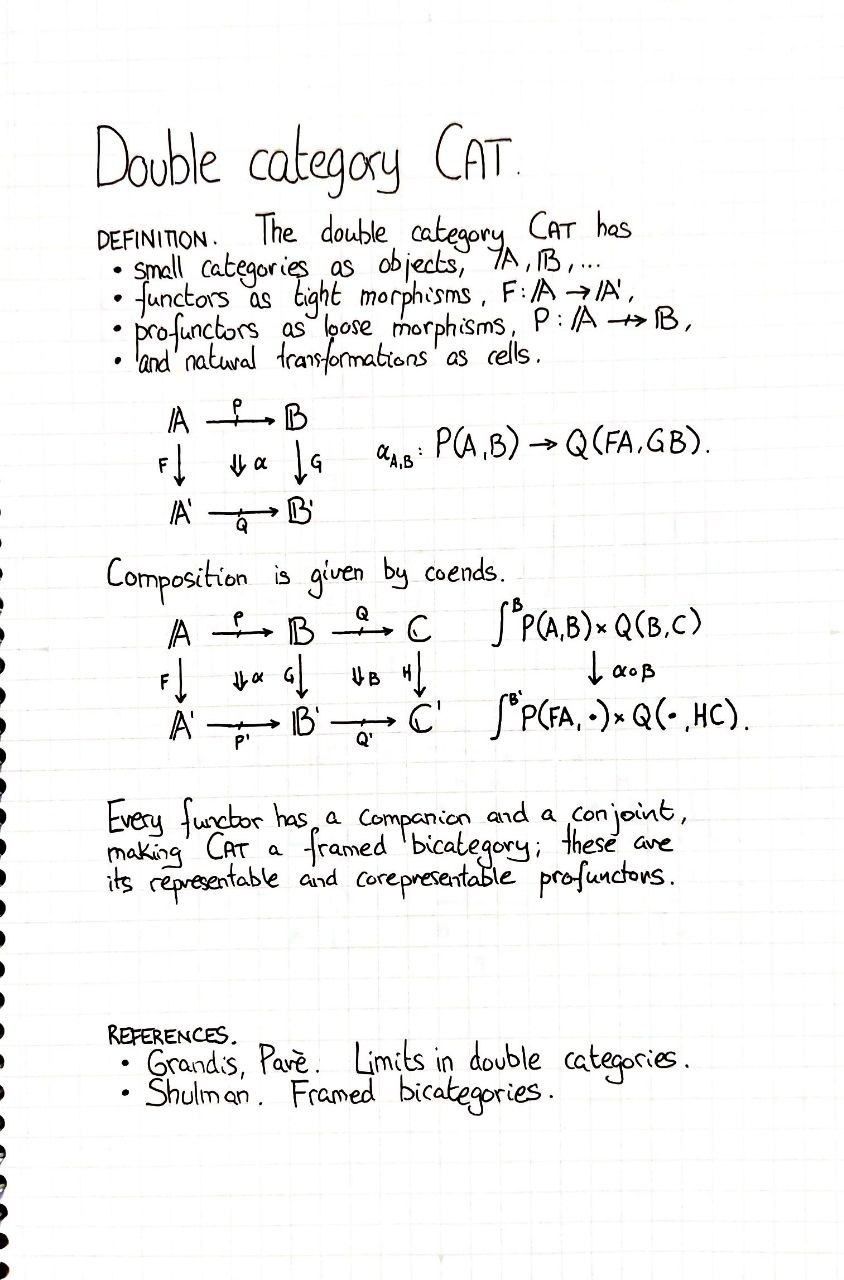 Double category CAT.
DEFINITION. The double category CAT has
• small categories as objects, 𝔸, 𝔹, ...
• functors as tight morphisms, F: 𝔸 → 𝔸',
• profunctors as loose morphisms, P: 𝔸 ⇸ 𝔹,
• and natural transformations as cells.
𝔸 P 𝔹
F ⇓ α G α_{A,B}: P(A,B) → Q(FA,GB).
𝔸' Q 𝔹'
Composition is given by coends.
𝔸 P 𝔹 Q ℂ ∫^B P(A,B) × Q(B,C)
F ⇓ α G ⇓ B H ↓ α∘B
𝔸' P' 𝔹' Q' ℂ' ∫^B' P(FA, •) × Q(•, HC).
Every functor has a companion and a conjoint,
making CAT a framed bicategory; these are
its representable and corepresentable profunctors.
REFERENCES.
• Grandis, Parè. Limits in double categories.
• Shulman. Framed bicategories.